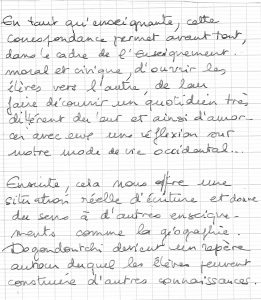 En tant qu'enseignante, cette
correspondance permet avant tout,
dans le cadre de l'Enseignement
moral et civique, d'ouvrir les
élèves vers l'autre, de leur
faire découvrir un quotidien très
différent du leur et ainsi d'amor-
cer avec eux une réflexion sur
notre mode de vie occidental...
Ensuite, cela nous offre une
situation réelle d'écriture et donne
du sens à d'autres enseigne-
ments comme la géographie.
Dogondoutchi devient un repère
autour duquel les élèves peuvent
construire d'autres connaissances.